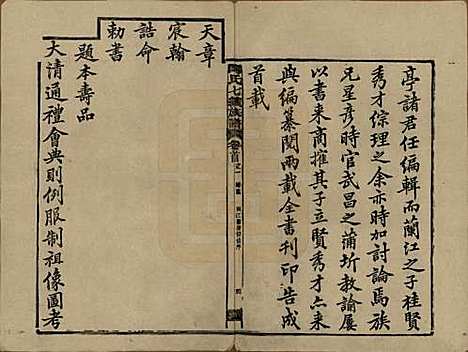 亭諸君任編輯而蘭江之子桂賢
秀才綜理之余亦時加討論焉族
兄星彥時官武昌之蒲圻教諭屢
以書來商搉其子立賢秀才亦來
與編纂閱兩載全書刊印告成
首載
卷首之一
四
天章
宸翰
誥命
勅書
題本壽品
大清通禮會典則例服制祖像圖考